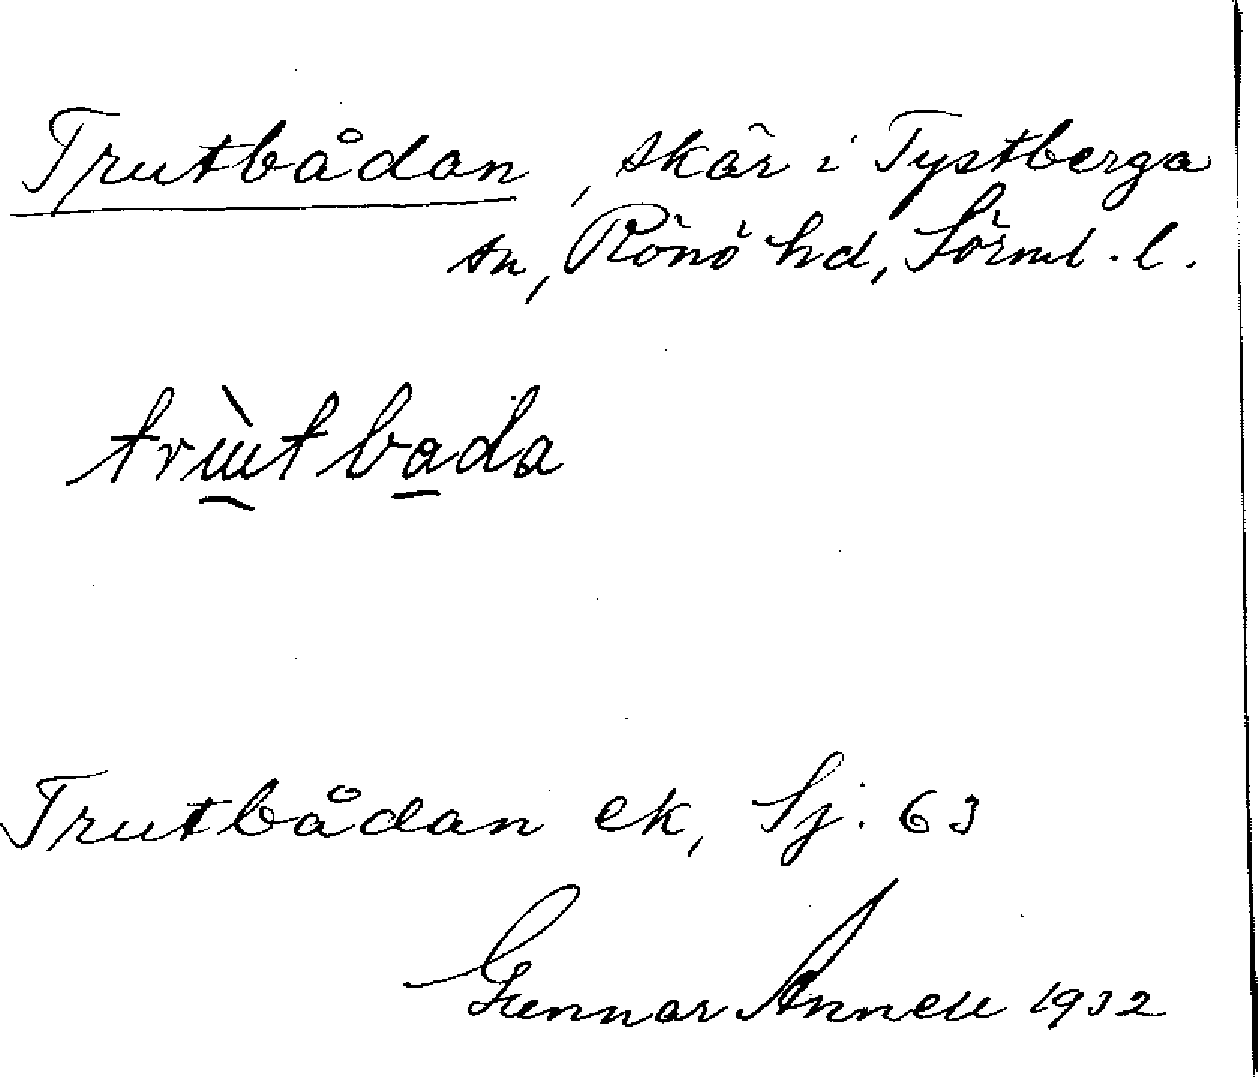 Trutbådan, skär i Tystberga
sn, Rönö hd, Sörml. l.
trùtbada
Trutbådan ek, Sj. 63
Gunnar Annell 1932